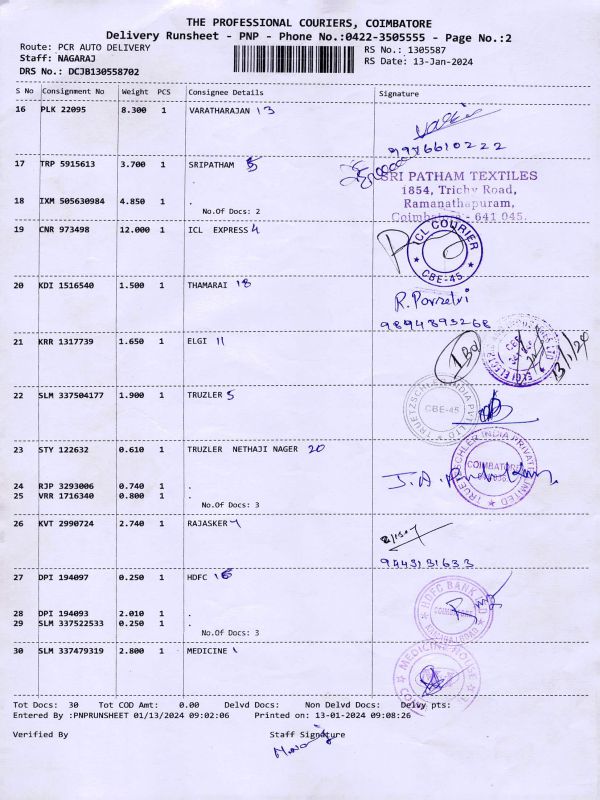 THE PROFESSIONAL COURIERS, COIMBATORE
Delivery Runsheet - PNP - Phone No.:0422-3505555 - Page No.:2
Route: PCR AUTO DELIVERY RS No.: 1305587
Staff: NAGARAJ RS Date: 13-Jan-2024
DRS No.: DCJB130558702
S No Consignment No Weight PCS Consignee Details Signature
16 PLK 22095 8.300 1 VARATHARAJAN 13
9976610222
17 TRP 5915613 3.700 1 SRIPATHAM 5
SRI PATHAM TEXTILES
. 1854, Trichy Road,
18 IXM 505630984 4.850 1 . Ramanathapuram,
No.Of Docs: 2 Coimbatore - 641 045.
19 CNR 973498 12.000 1 ICL EXPRESS 4
ICL COURIER
CBE-45
20 KDI 1516540 1.500 1 THAMARAI 18
9894893268
21 KRR 1317739 1.650 1 ELGI 11
13/1/24
22 SLM 337504177 1.900 1 TRUZLER 5
TRUETZSCHLER INDIA PVT. LTD
CBE-45
23 STY 122632 0.610 1 TRUZLER NETHAJI NAGER 20
TRUETZSCHLER INDIA PRIVATE LIMITED
COIMBATORE
24 RJP 3293006 0.740 1 .
25 VRR 1716340 0.800 1 .
No.Of Docs: 3
26 KVT 2990724 2.740 1 RAJASKER
9443131633
27 DPI 194097 0.250 1 HDFC 16
HDFC BANK LTD
28 DPI 194093 2.010 1 .
29 SLM 337522533 0.250 1 .
No.Of Docs: 3
30 SLM 337479319 2.800 1 MEDICINE \
MEDICINE HOUSE
Tot Docs: 30 Tot COD Amt: 0.00 Delvd Docs: Non Delvd Docs: Delvy pts:
Entered By :PNPRUNSHEET 01/13/2024 09:02:06 Printed on: 13-01-2024 09:08:26
Verified By Staff Signature